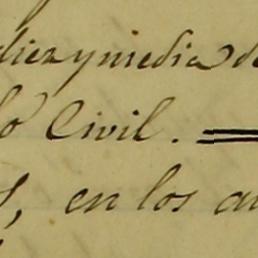 diez y media de
lo Civil. =
, en los au